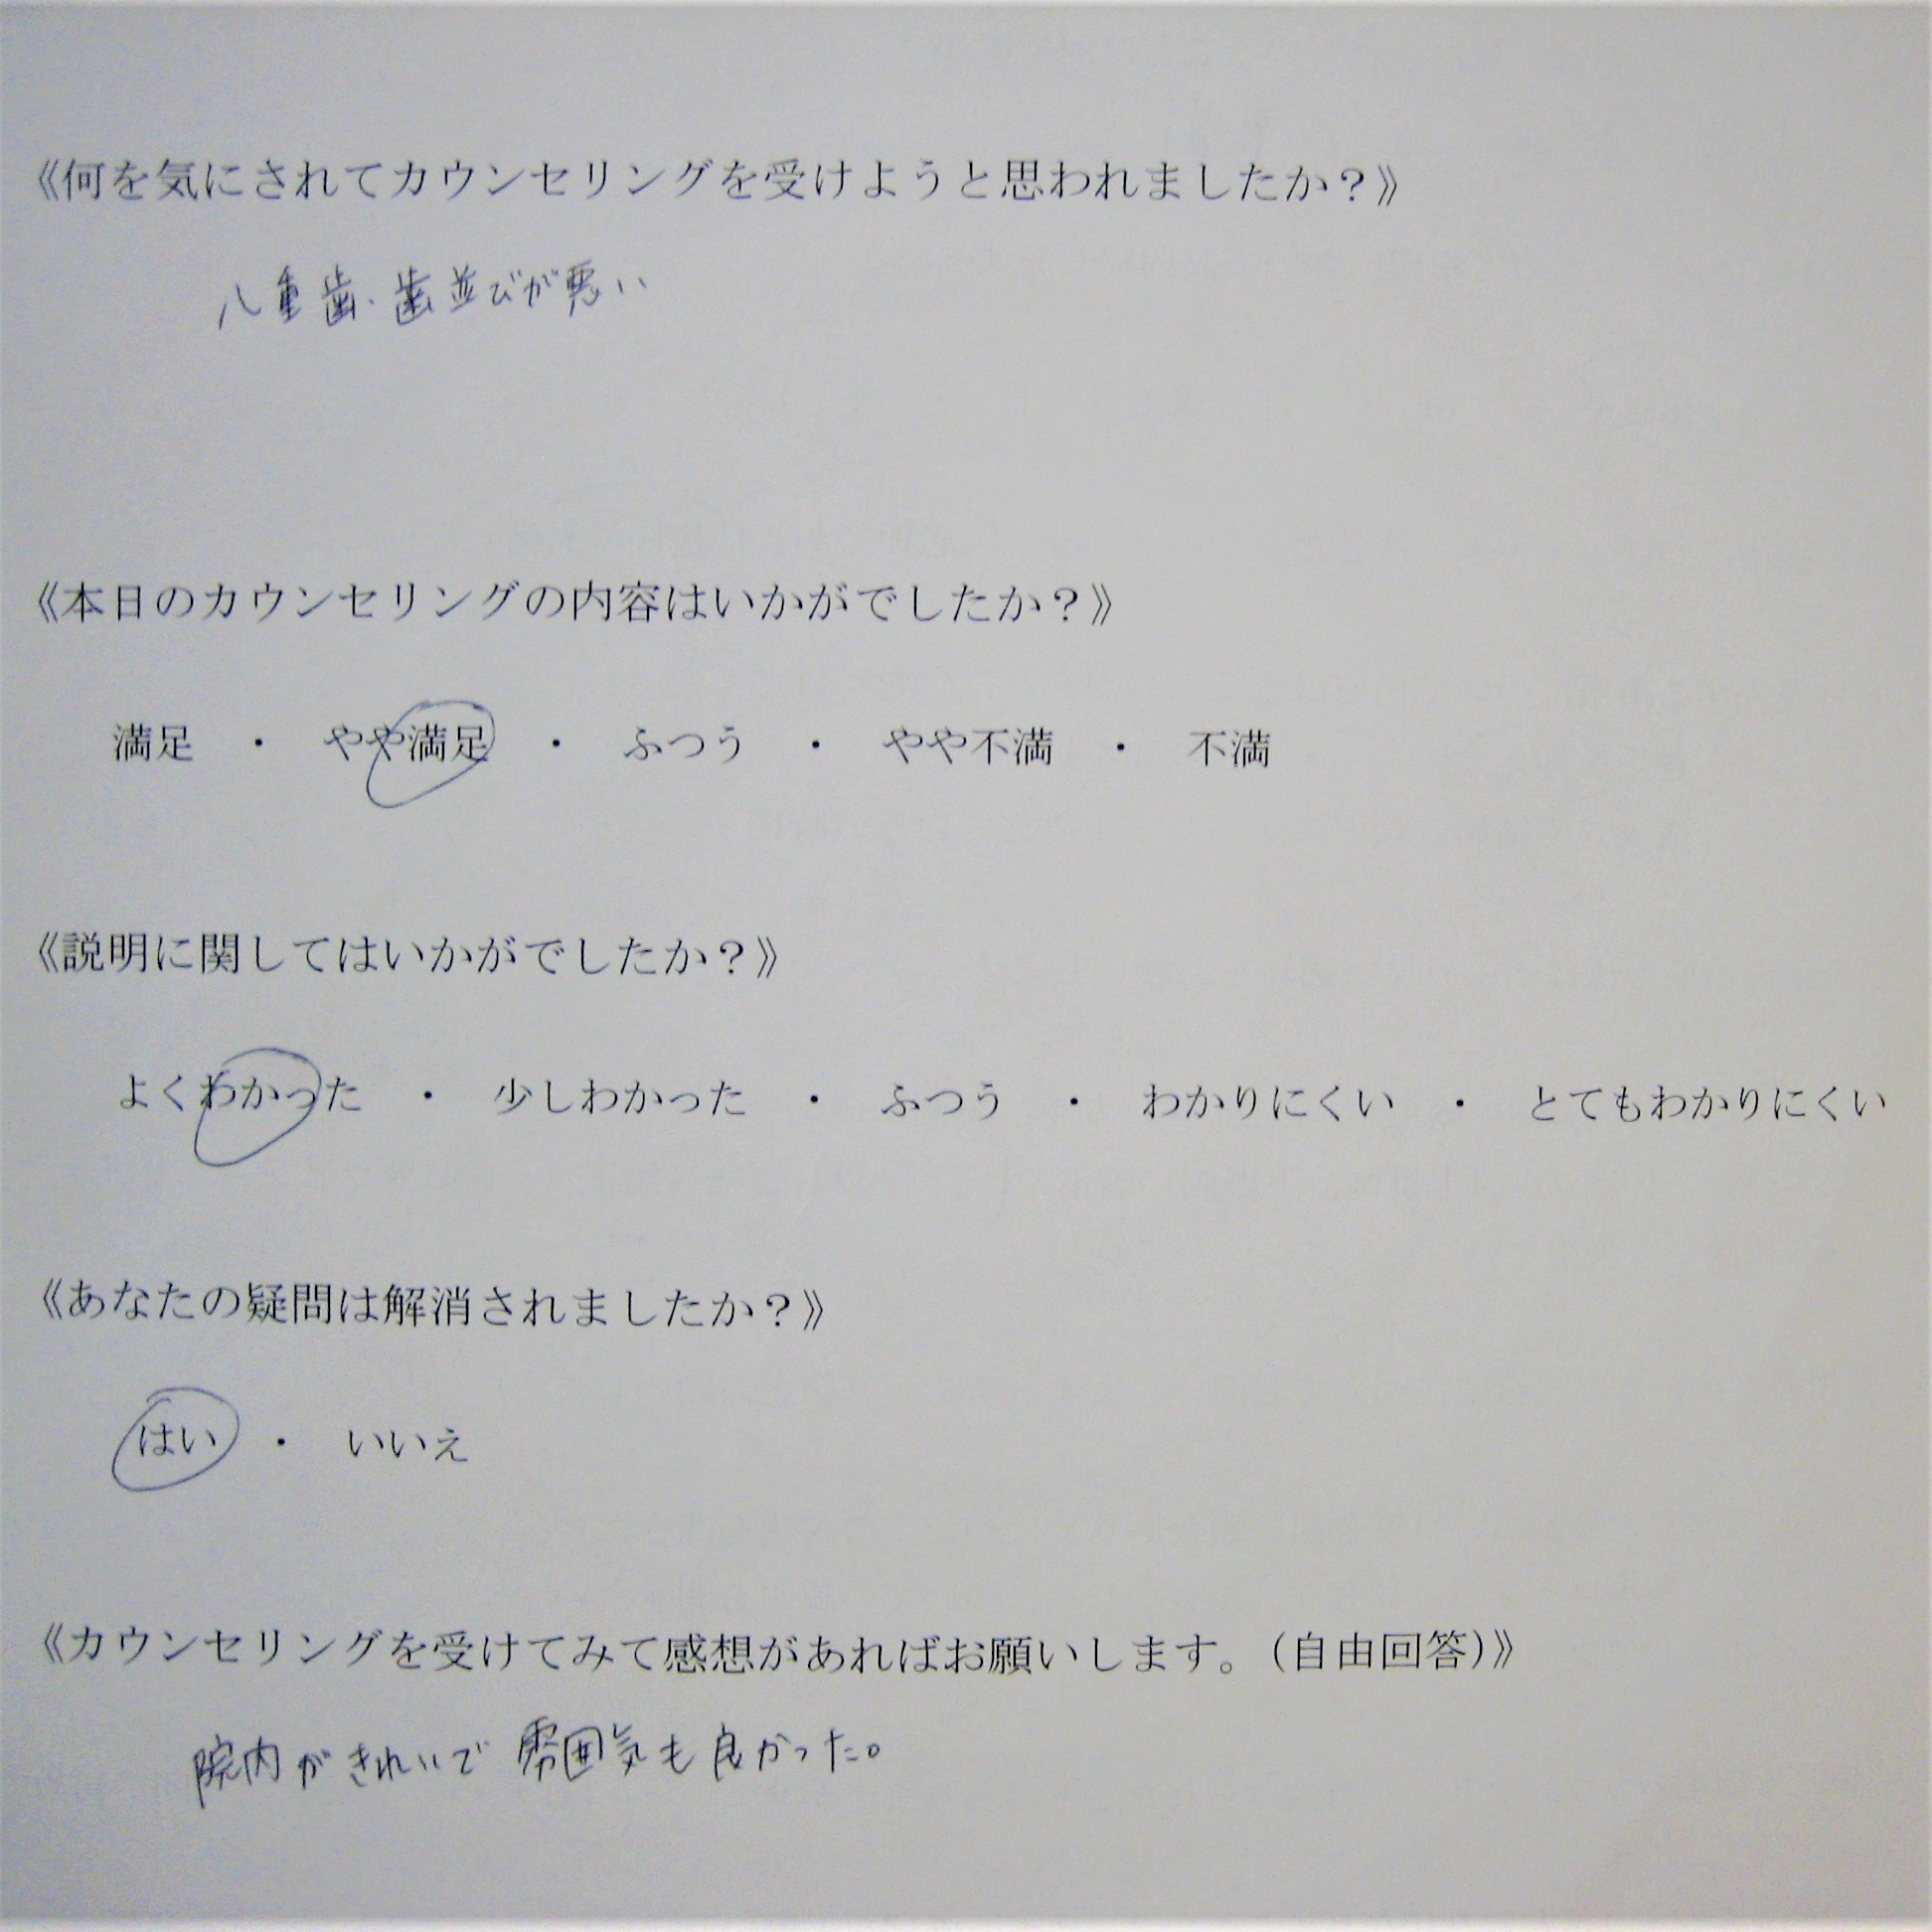 《何を気にされてカウンセリングを受けようと思われましたか？》
八重歯・歯並びが悪い
《本日のカウンセリングの内容はいかがでしたか？》
満足　・　やや満足　・　ふつう　・　やや不満　・　不満
《説明に関してはいかがでしたか？》
よくわかった　・　少しわかった　・　ふつう　・　わかりにくい　・　とてもわかりにくい
《あなたの疑問は解消されましたか？》
はい　・　いいえ
《カウンセリングを受けてみて感想があればお願いします。(自由回答)》
院内がきれいで雰囲気も良かった。